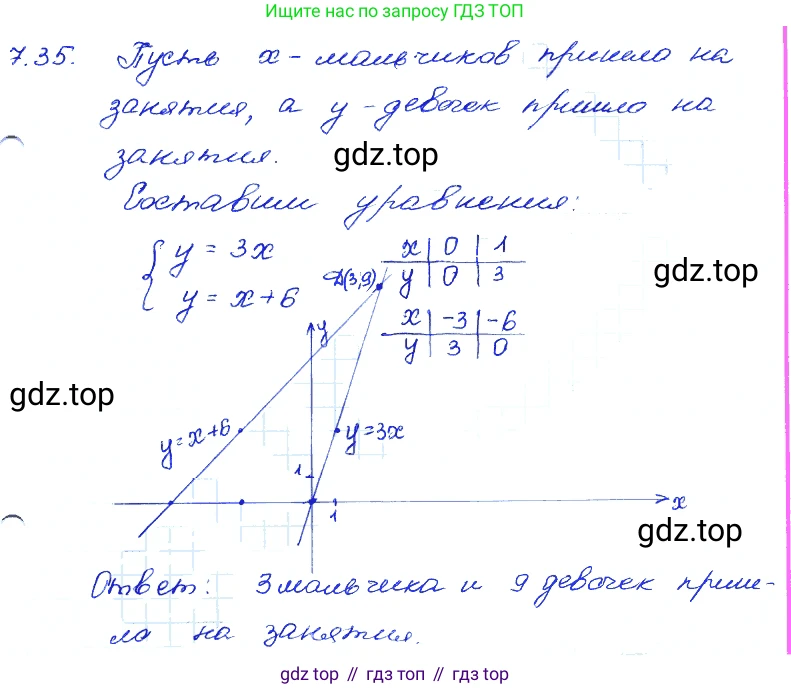 Ищите нас по запросу ГДЗ ТОП
7.35. Пусть x - мальчиков пришло на
занятия, а y - девочек пришло на
занятия.
gdz.top
Составим уравнения:
{ y = 3x
y = x + 6
A(3;9)
x | 0 | 1
y | 0 | 3
gdz.top
x | -3 | -6
y | 3 | 0
y
gdz.top
y = x + 6
y = 3x
1
1
x
gdz.top
Ответ: 3 мальчика и 9 девочек приш-
ло на занятия.
gdz top // гдз топ // gdz top